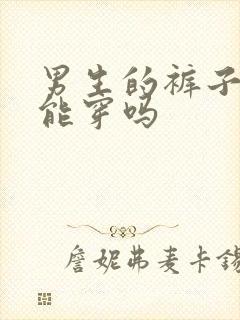 男生的裤子
能穿吗
詹妮弗麦卡锡